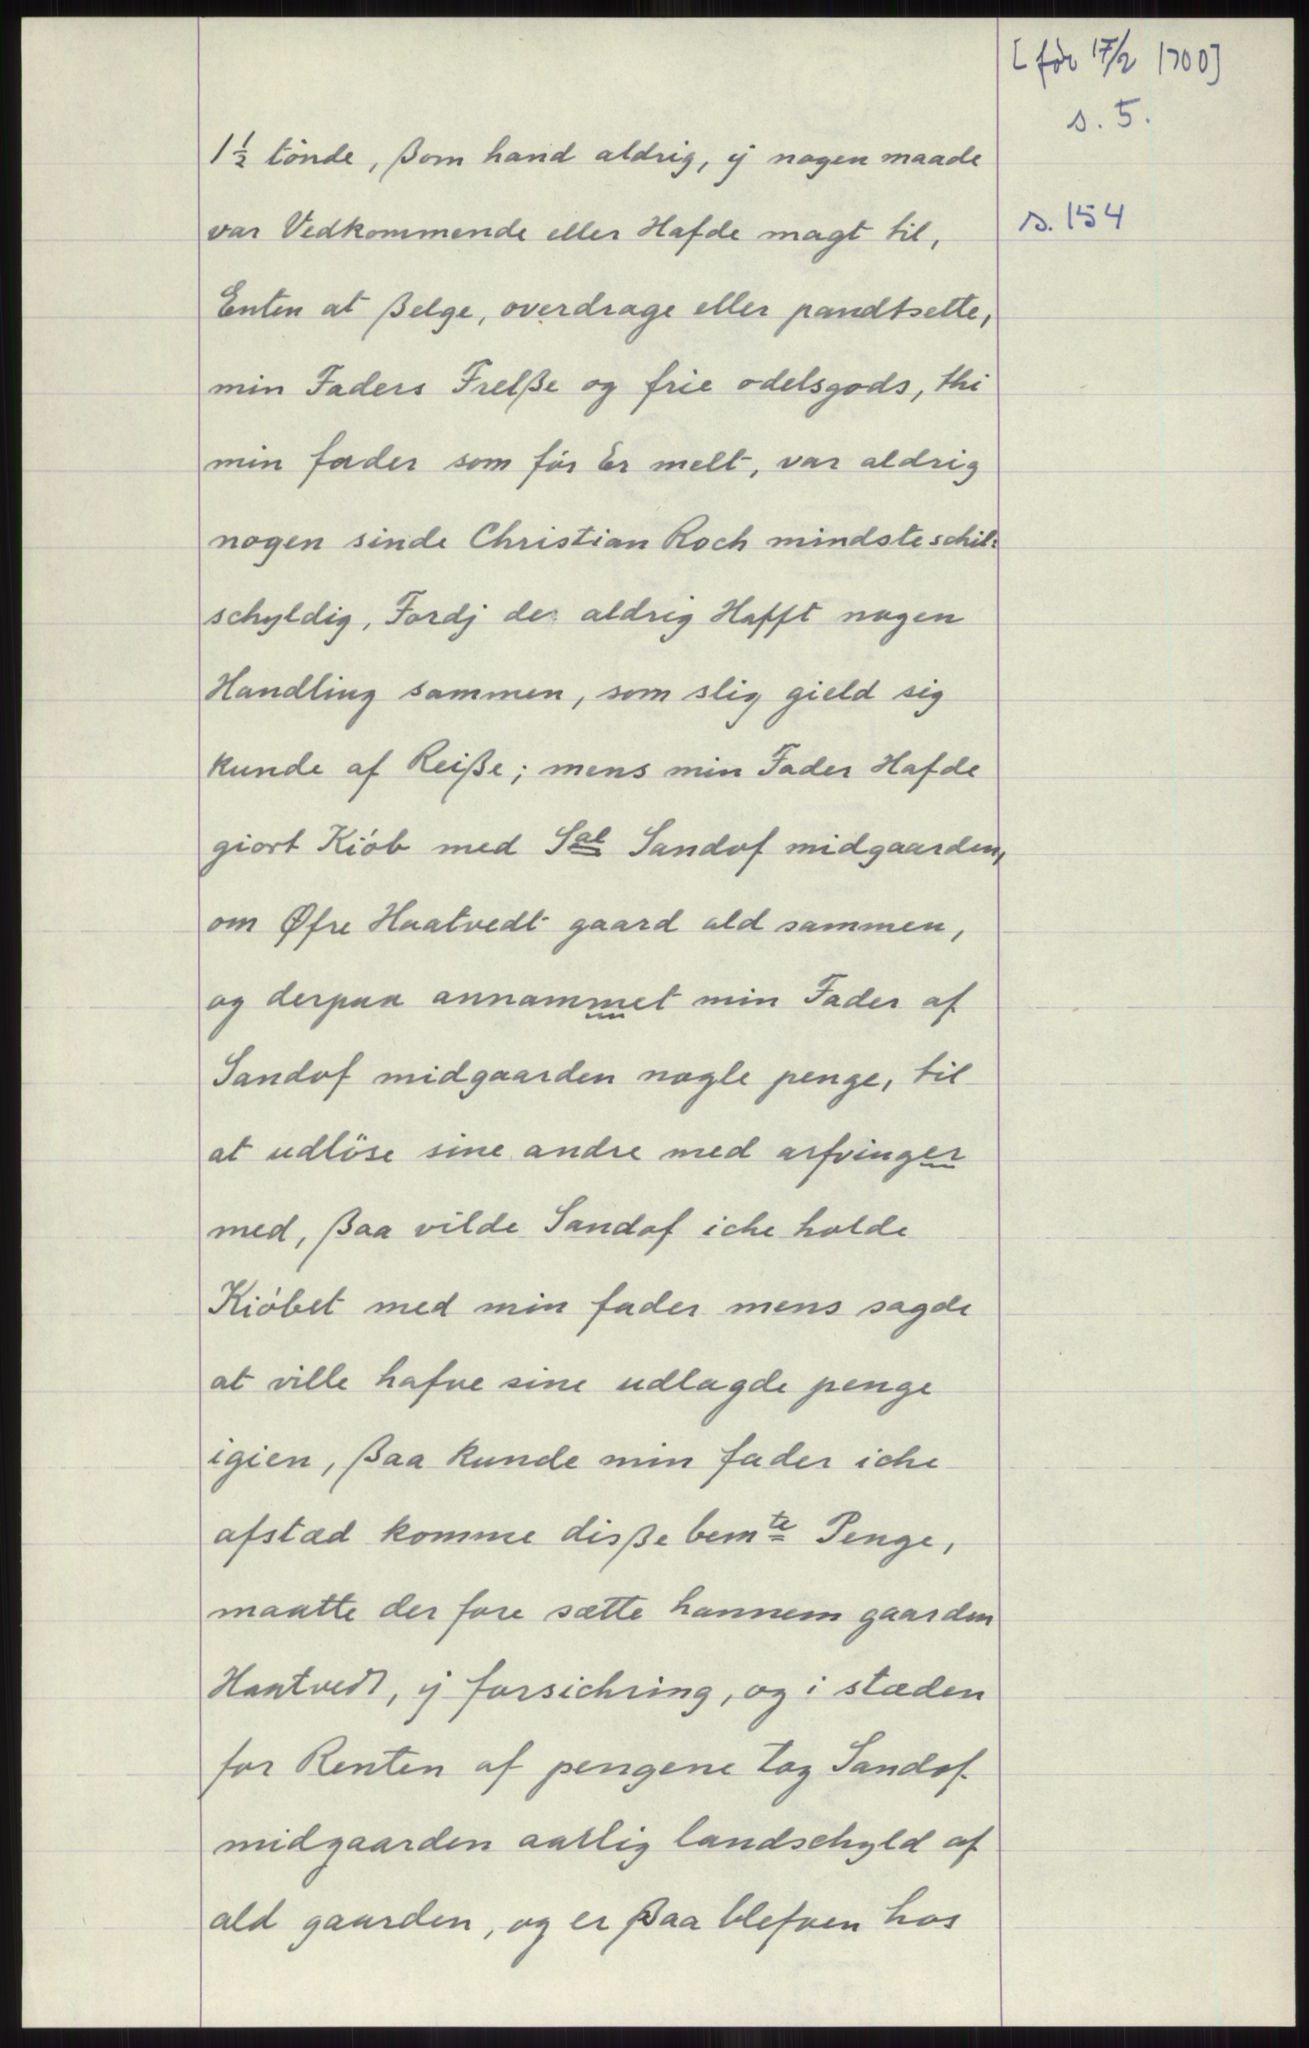 [før 17/2 1700]
s. 5.
s. 154
1 1/2 tönde, ßom hand aldrig, ij nogen maade
var Vedkommende eller Hafde magt til,
Enten at ßelge, overdrage eller pandtsette,
min Faders Frelße og frie odelsgods, thi
min fader som för Er melt, var aldrig
nogen sinde Christian Roch mindste schil:
schyldig, Fordj de aldrig Hafft nogen
Handling sammen, som slig gield sig
kunde af Reiße; mens min Fader Hafde
giort Kiób med Sal Sandof midgaarden,
om Øfre Haatvedt gaard ald sammen,
og derpaa annammet min Fader af
Sandof midgaarden nogle penge, til
at udlöse sine andre med arfvinger
med, ßaa vilde Sandof iche holde
Kióbet med min fader mens sagde
at ville hafve sine udlagde penge
igien, ßaa kunde min fader iche
afstæd komme disße bemte Penge,
maatte der fore sætte hannem gaarden
Haatvedt, ij forsichring, og i stæden
for Renten af pengene tog Sandof
midgaarden aarlig landschyld af
ald gaarden, og er ßaa blefven hos